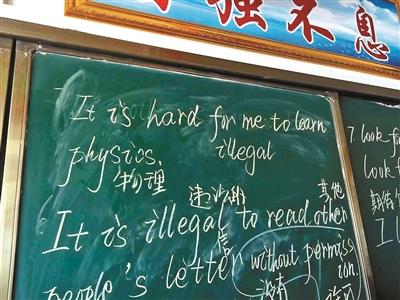 强不息
It is hard for me to learn
physics. illegal
物理 违法的 其他
It is illegal to read other
信
people's letter without permiss
ion.
没有 许可
7. look fo
look f
I l